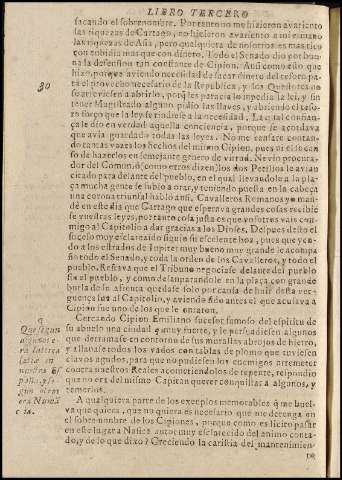 LIBRO TERCERO
sacando el sobrenombre. Por tanto no me hizieron avariento
las riquezas de Cartago, ni hizieron avariento a mi ermano
las riquezas de Asia, pero qualquiera de nosotros es mas rico
con enbidia mas que con dinero. Todo el Senado dio por bue
na la defension tan constante de Cipion. Assi como esto que
hizo, porque aviendo necessidad de sacar dinero del tesoro pa
30
ra el provecho necesario de la Republica, y los Questores no
se atreviessen a abrirlo, porque les parecia lo impedia la lei, y sin
tener Magistrado algun pidio las llaves, y abriendo el teso-
ro forço que la ley se rindiesse a la necessidad. La qual confian-
ça le dio en verdad aquella conciencia, porque se acordava
que avia guardado todas las leyes. No me cansare contan-
do tantas vezes los hechos del mismo Cipion, pues ni el se can
so de hazerlos en semejante genero de virtud.
dor del Comun, o como otros dizen los dos Petilios le avian
citado para delante del pueblo, en el qual llevandole a la pla-
ça mucha gente se subio a orar, y teniendo puesta en la cabeça
una corona triunfal hablo assi. Cavalleros Romanos yo man-
de en este dia que Cartago que esperava grandes cosas recibie
se vuestras leyes, por tanto cosa justa es que vosotros vais con-
migo al Capitolio a dar gracias a los Dioses. Despues desto el
sucesso muy esclarecido siguio su excelente hoz, pues que yen-
do a los estrados de Iupiter muy bueno muy grande lo acompa
ño todo el Senado, y toda la orden de los Cavalleros, y todo el
pueblo. Restava que el Tribuno negociasse delante del pueblo
sin el pueblo, y como desamparandole en la plaça con grande
burla de su afrenta quedasse solo por causa de huir desta ver-
guença fue al Capitolio, y aviendo sido antes el que acusava a
Cipion fue uno de los que le onraron.
Cercando Cipion Emiliano sucessor famoso del espiritu de
su abuelo una ciudad q muy fuerte, y le persuadiessen algunos
que derramasse en contorno de sus murallas abrojos de hierro,
y allanasse todos los vados con tablas de plomo que tuviessen
clavos agudos, para que no pudiessen los enemigos arremeter
contra nuestros Reales acometiendolos de repente, respondio
que no era del mismo Capitan querer conquistar a algunos, y
temerlos.
q
Que segun
algunos e-
ra
nuestra Es
paña, y se-
gun otros
era Numã
cia.
A qualquiera parte de los exemplos memorables q me buel-
va que quiera, que no quiera es necesario que me detenga en
el sobre nombre de los Cipiones, porque como es licito passar
en este lugar a Nasica autor muy esclarecido del animo conta-
do, y de lo que dixo? Creciendo la caristia del mantenimien-